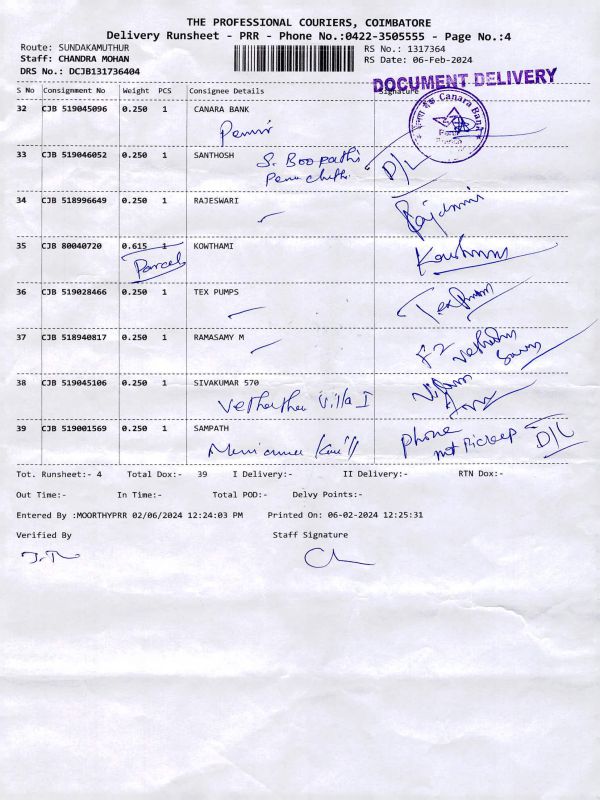 THE PROFESSIONAL COURIERS, COIMBATORE
Delivery Runsheet - PRR - Phone No.:0422-3505555 - Page No.:4
Route: SUNDAKAMUTHUR
RS No.: 1317364
Staff: CHANDRA MOHAN
RS Date: 06-Feb-2024
DRS No.: DCJB131736404
DOCUMENT DELIVERY
S No Consignment No Weight PCS Consignee Details Signature
32 CJB 519045096 0.250 1 CANARA BANK
Canara Bank
33 CJB 519046052 0.250 1 SANTHOSH S. Boopathi D/L
34 CJB 518996649 0.250 1 RAJESWARI
35 CJB 80040720 0.615 1 KOWTHAMI
Parcel
36 CJB 519028466 0.250 1 TEX PUMPS
37 CJB 518940817 0.250 1 RAMASAMY M
38 CJB 519045106 0.250 1 SIVAKUMAR 570
Villa I
39 CJB 519001569 0.250 1 SAMPATH Phone
not D/L
Tot. Runsheet:- 4 Total Dox:- 39 I Delivery:- II Delivery:- RTN Dox:-
Out Time:- In Time:- Total POD:- Delvy Points:-
Entered By :MOORTHYPRR 02/06/2024 12:24:03 PM Printed On: 06-02-2024 12:25:31
Verified By Staff Signature